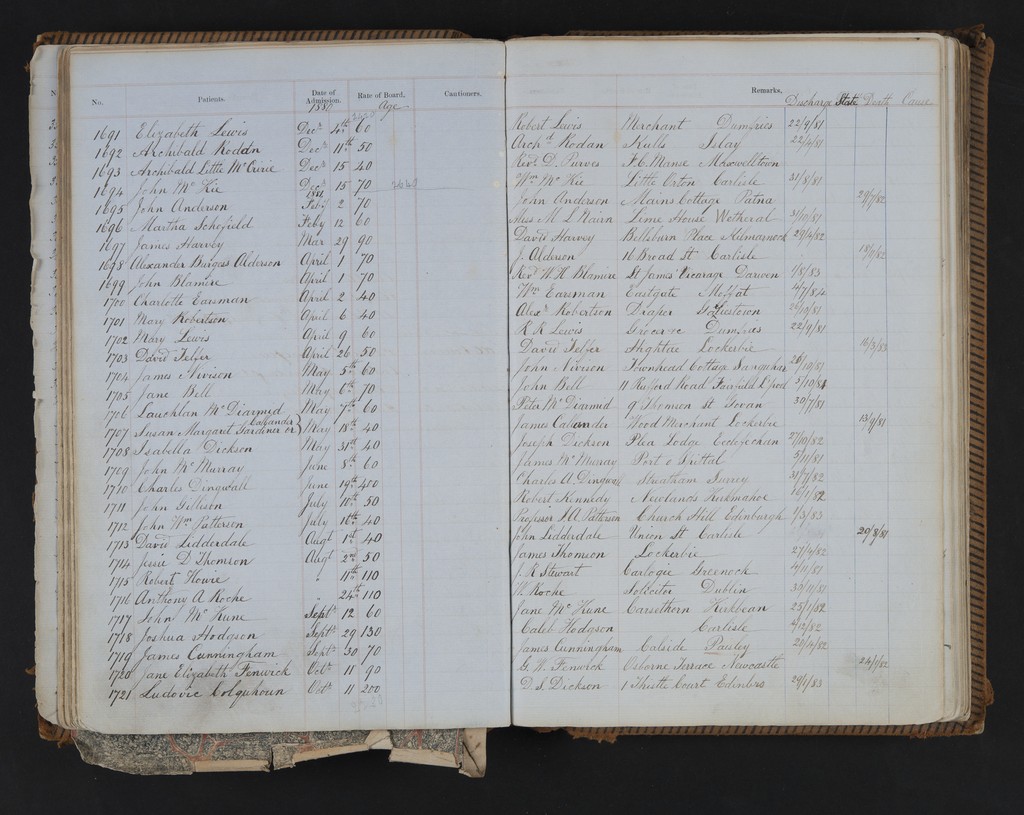 No. Patients. Date of Admission. Rate of Board. Cautioners. Remarks.
1880 Age Discharge State Death Cause
1691 Elizabeth Lewis Decr 4th 60 Robert Lewis Merchant Dumfries 22/9/81
1692 Archibald Rodan Decr 11th 50 Archd Rodan Kells Islay 22/4/81
1693 Archibald Little McCririe Decr 15 40 Revd D. Purves F.C. Manse Maxwelltown
1694 John McKie Decr 15 70 Wm McKie Little Orton Carlisle 31/8/81
1881
1695 John Anderson Feby 2 70 John Anderson Mains Cottage Patna
1696 Martha Schofield Feby 12 60 Miss M L Nairn Lime House Wetheral 31/10/81
1697 James Harvey Mar 29 90 David Harvey Bellsburn Place Kilmarnock 29/4/82
1698 Alexander Burgess Alderson April 1 70 J. Alderson 16 Broad St Carlisle
1699 John Blamire April 1 70 Revd W. H. Blamire St James' Vicarage Darwen 1/8/83
1700 Charlotte Earsman April 2 40 Wm Earsman Eastgate Moffat 4/7/84
1701 Mary Robertson April 6 40 Alexr Robertson Draper
1702 Mary Lewis April 9 60 R R Lewis Grocer &c Dumfries 22/9/81
1703 David Telfer April 26 50 David Telfer Hightae Lockerbie 16/3/83
1704 James Nivison May 5th 60 John Nivison Townhead Cottage Sanquhar
1705 Jane Bell May 6th 70 John Bell 11 Road Fairfield L'pool
1706 Lauchlan McDiarmid May 7th 60 Peter McDiarmid 9 Thomson St Govan 30/7/81
1707 Susan Margaret Gardiner or Callander May 18th 40 James Callander Wood Merchant Lockerbie 13/9/81
1708 Isabella Dickson May 31st 40 Joseph Dickson Plea Lodge Ecclefechan 27/10/82
1709 John McMurray June 8th 60 James McMurray Port o Spittal 5/11/81
1710 Charles Dingwall June 19th 400 Charles A. Dingwall Streatham Surrey 31/7/82
1711 John Gillison July 10th 50 Robert Kennedy Newlands Kirkmahoe 16/1/82
1712 John Wm Patterson July 10th 40 Professor J. A. Patterson Church Hill Edinburgh 1/3/83
1713 David Lidderdale Augt 1st 40 John Lidderdale Union St Carlisle 20/8/81
1714 Jessie D Thomson Augt 2nd 50 James Thomson Lockerbie 27/4/82
1715 Robert Howie " 11th 110 J. R Stewart Cartogie Greenock 4/11/81
1716 Anthony A Roche " 24th 110 W. Roche Solicitor Dublin 30/11/81
1717 John McKune Septr 12 60 Jane McKune Carsethorn Kirkbean 25/1/82
1718 Joshua Hodgson Septr 29 130 Caleb Hodgson Carlisle 4/12/82
1719 James Cunningham Septr 30 70 James Cunningham Calside Paisley 26/4/82
1720 Jane Elizabeth Fenwick Octr 11 90 G. W. Fenwick Osborne Terrace Newcastle 24/1/82
1721 Ludovic Colquhoun Octr 11 200 D. S. Dickson 1 Thistle Court Edinbro 29/1/83